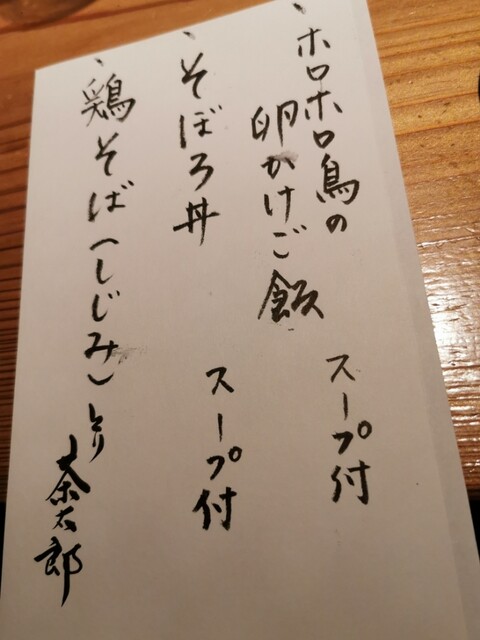 、ホロホロ鳥の
卵かけご飯
スープ付
、そぼろ丼
スープ付
、鶏そば(しじみ)
とり
茶太郎